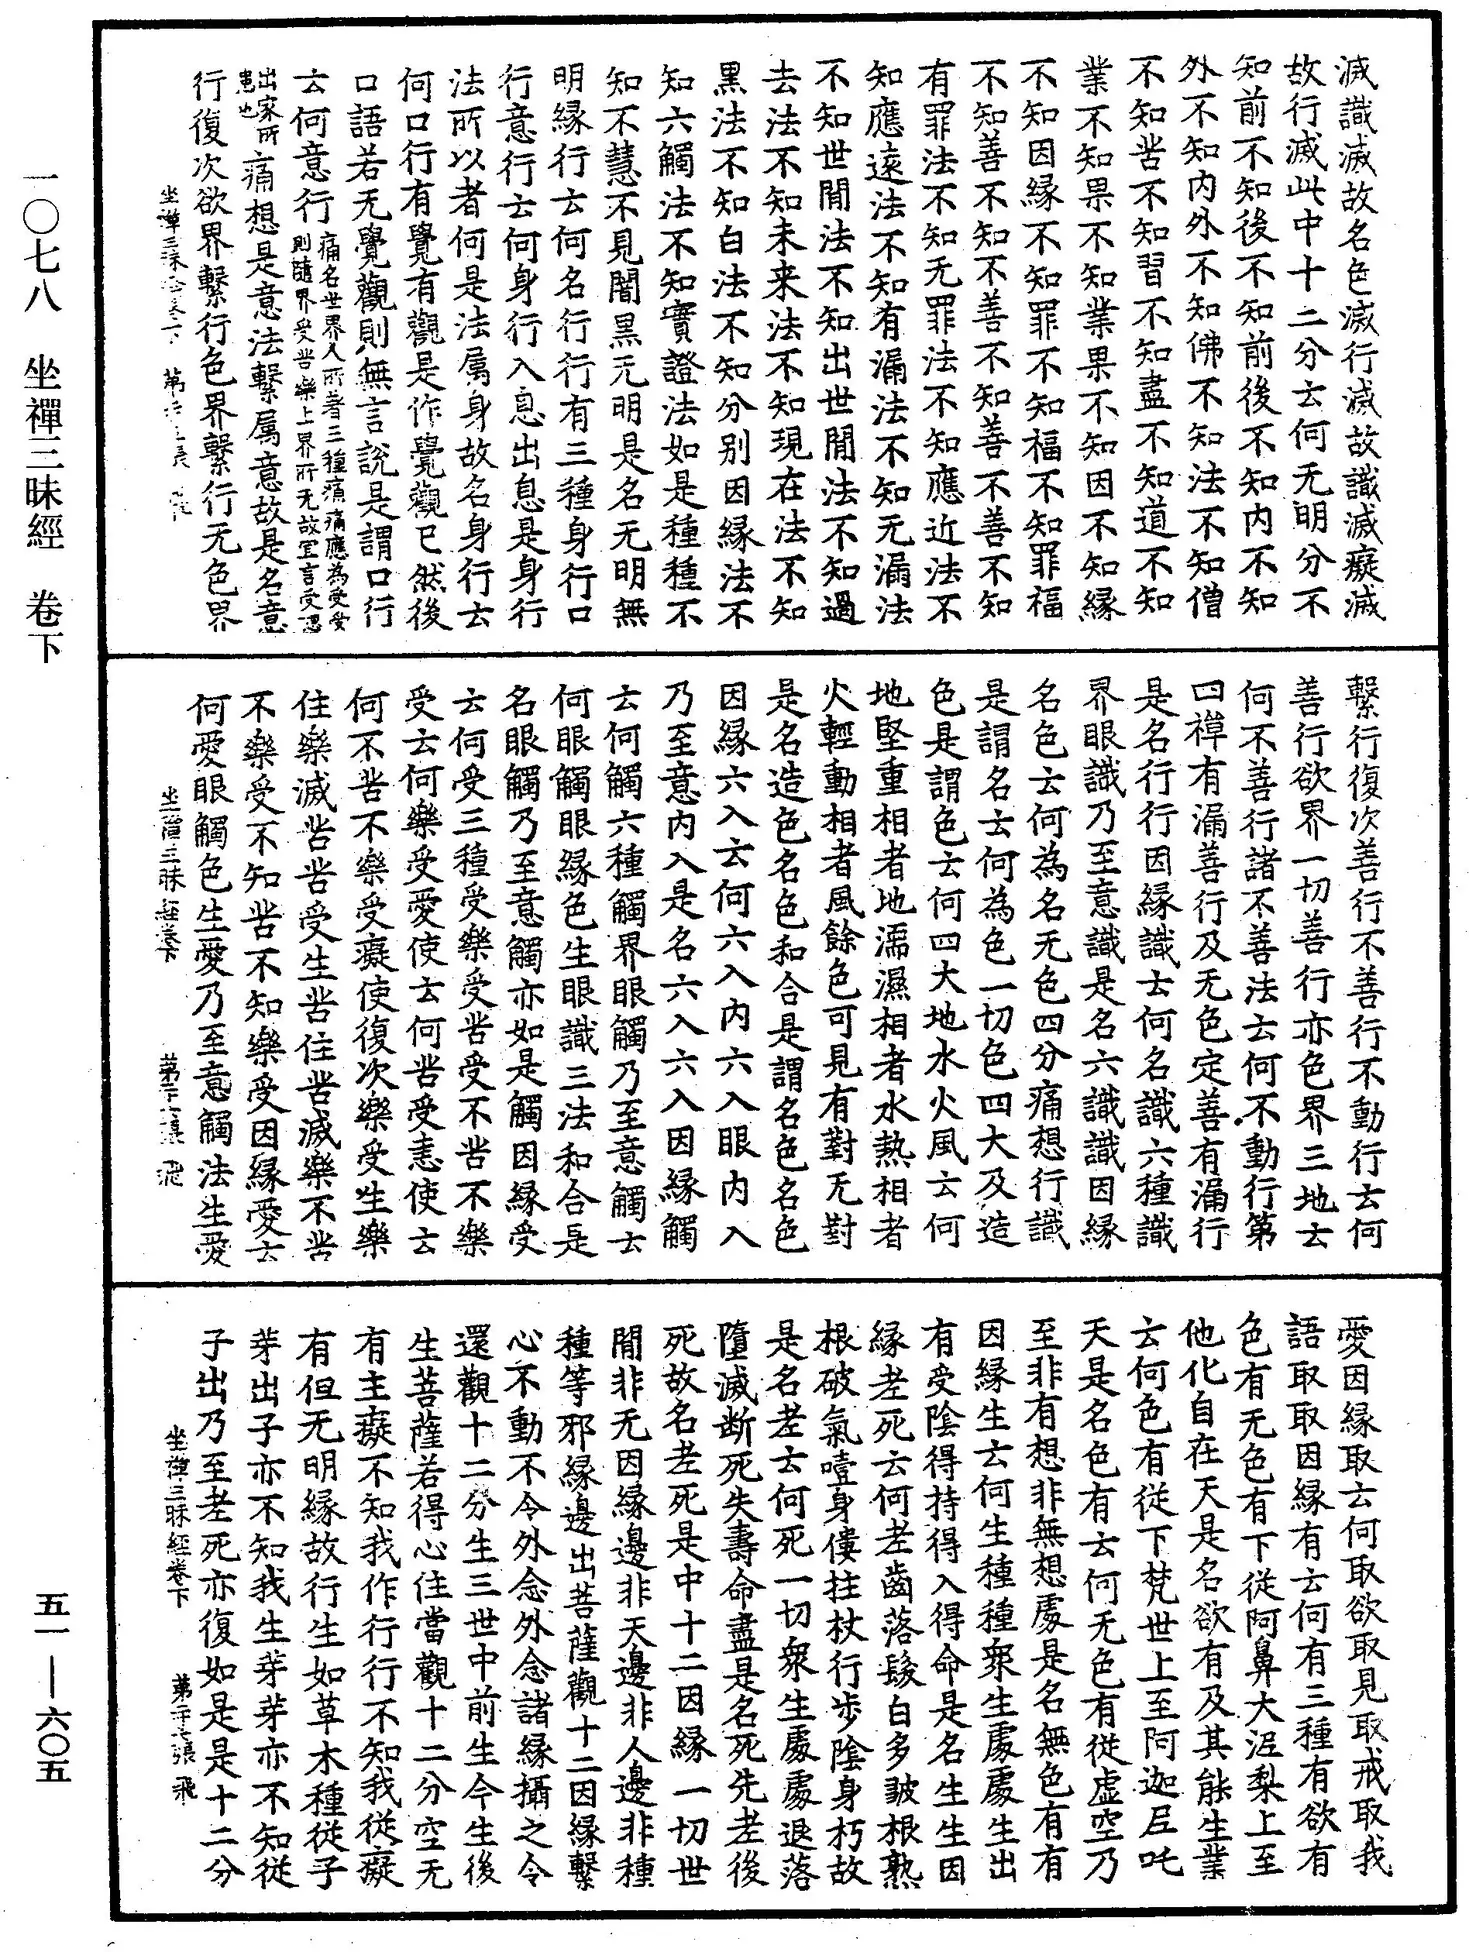 滅識滅故名色滅行滅故識滅癡滅
故行滅此中十二分云何无明分不
知前不知後不知前後不知內不知
外不知內外不知佛不知法不知僧
不知苦不知習不知盡不知道不知
業不知果不知業果不知因不知緣
不知因緣不知罪不知福不知罪福
不知善不知不善不知善不善不知
有罪法不知无罪法不知應近法不
知應遠法不知有漏法不知无漏法
不知世閒法不知出世閒法不知過
去法不知未来法不知現在法不知
黑法不知白法不知分別因緣法不
知六觸法不知實證法如是種種不
知不慧不見闇黑无明是名无明無
明緣行云何名行行有三種身行口
行意行云何身行入息出息是身行
法所以者何是法屬身故名身行云
何口行有覺有觀是作覺觀已然後
口語若无覺觀則無言說是謂口行
云何意行痛名世界人所著三種痛痛應為受受則隨界受苦樂上界所无故宜言受
出家所患也痛想是意法繫屬意故是名意
行復次欲界繫行色界繫行无色界
坐禪三昧經卷下
繫行復次善行不善行不動行云何
善行欲界一切善行亦色界三地云
何不善行諸不善法云何不動行第
四禪有漏善行及无色定善有漏行
是名行行因緣識云何名識六種識
界眼識乃至意識是名六識識因緣
名色云何為名无色四分痛想行識
是謂名云何為色一切色四大及造
色是謂色云何四大地水火風云何
地堅重相者地濡濕相者水熱相者
火輕動相者風餘色可見有對无對
是名造色名色和合是謂名色名色
因緣六入云何六入內六入眼內入
乃至意內入是名六入六入因緣觸
云何觸六種觸界眼觸乃至意觸云
何眼觸眼緣色生眼識三法和合是
名眼觸乃至意觸亦如是觸因緣受
云何受三種受樂受苦受不苦不樂
受云何樂受愛使云何苦受恚使云
何不苦不樂受癡使復次樂受生樂
住樂滅苦苦受生苦住苦滅樂不苦
不樂受不知苦不知樂受因緣愛云
何愛眼觸色生愛乃至意觸法生愛
坐禪三昧經卷下 飛
愛因緣取云何取欲取見取戒取我
語取取因緣有云何有三種有欲有
色有无色有下從阿鼻大泥梨上至
他化自在天是名欲有及其能生業
云何色有從下梵世上至阿迦尼吒
天是名色有云何无色有從虛空乃
至非有想非無想處是名無色有有
因緣生云何生種種眾生處處生出
有受陰得持得入得命是名生生因
緣老死云何老齒落髮白多皺根熟
根破氣噎身僂拄杖行步陰身朽故
是名老云何死一切眾生處處退落
墮滅斷死失壽命盡是名死先老後
死故名老死是中十二因緣一切世
閒非无因緣邊非天邊非人邊非種
種等邪緣邊出菩薩觀十二因緣繫
心不動不令外念外念諸緣攝之令
還觀十二分生三世中前生今生後
生菩薩若得心住當觀十二分空无
有主癡不知我作行行不知我從癡
有但无明緣故行生如草木種從子
芽出子亦不知我生芽芽亦不知從
子出乃至老死亦復如是是十二分
坐禪三昧經卷下 飛
一〇七八 坐禪三昧經 卷下
五一——六〇五